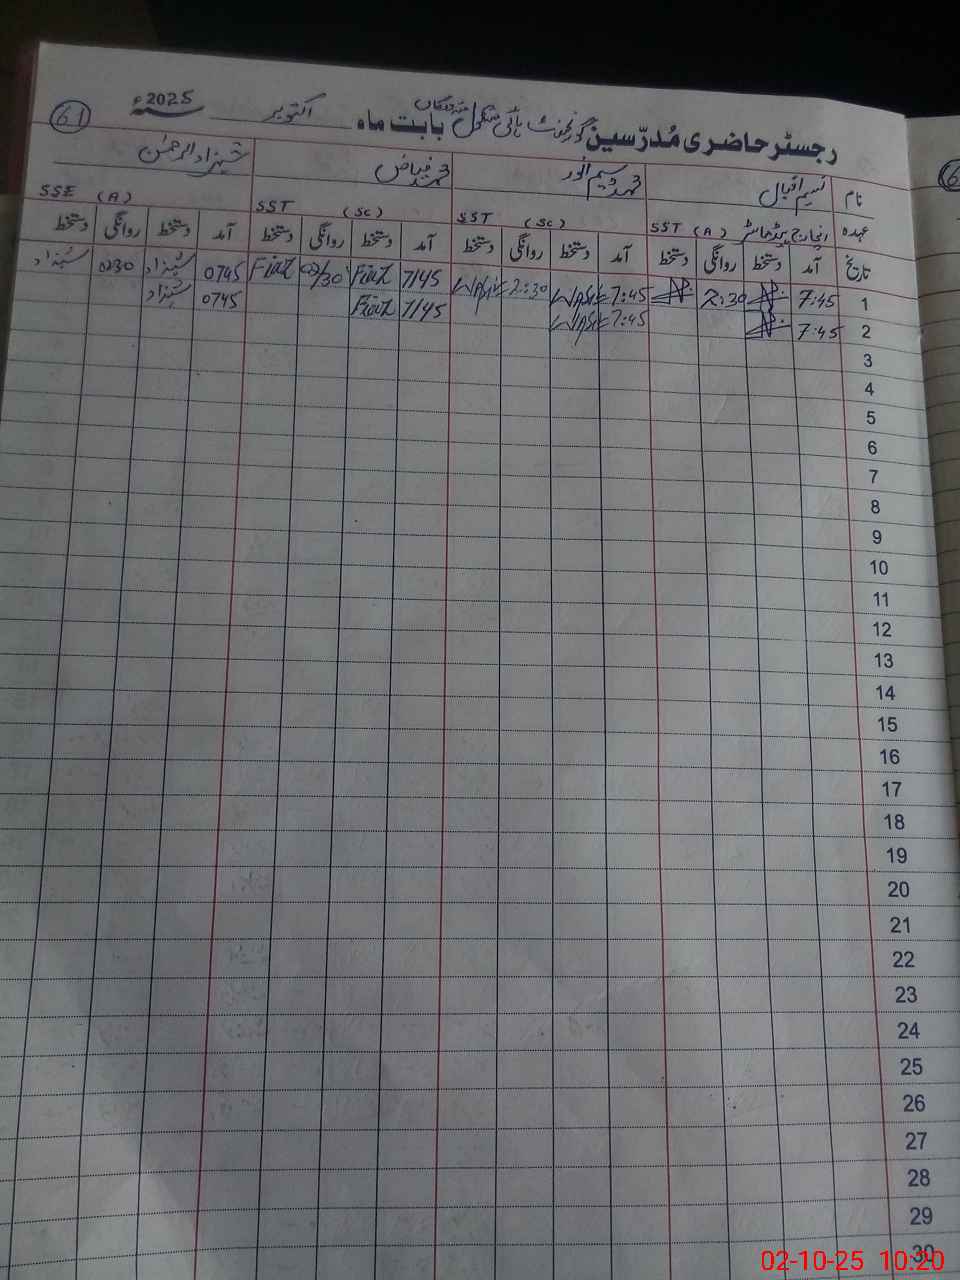 61
رجسٹر حاضری مُدرّسین گورنمنٹ ہائی سکول بابت ماہ اکتوبر 2025ء
نام نسیم اقبال محمد وسیم انور محمد فیاض شہزاد الرحمٰن
عہدہ انچارج ہیڈماسٹر SST (A) SST (SC) SST (SC) SSE (A)
تاریخ آمد دستخط روانگی دستخط آمد دستخط روانگی دستخط آمد دستخط روانگی دستخط آمد دستخط روانگی دستخط
1 7:45 2:30 7:45 WASIM 2:30 WASIM 7/45 Fiaz 02/30 Fiaz 0745 شہزاد 0230 شہزاد
2 7:45 7:45 WASIM 7/45 Fiaz 0745 شہزاد
3
4
5
6
7
8
9
10
11
12
13
14
15
16
17
18
19
20
21
22
23
24
25
26
27
28
29
30
02-10-25 10:20